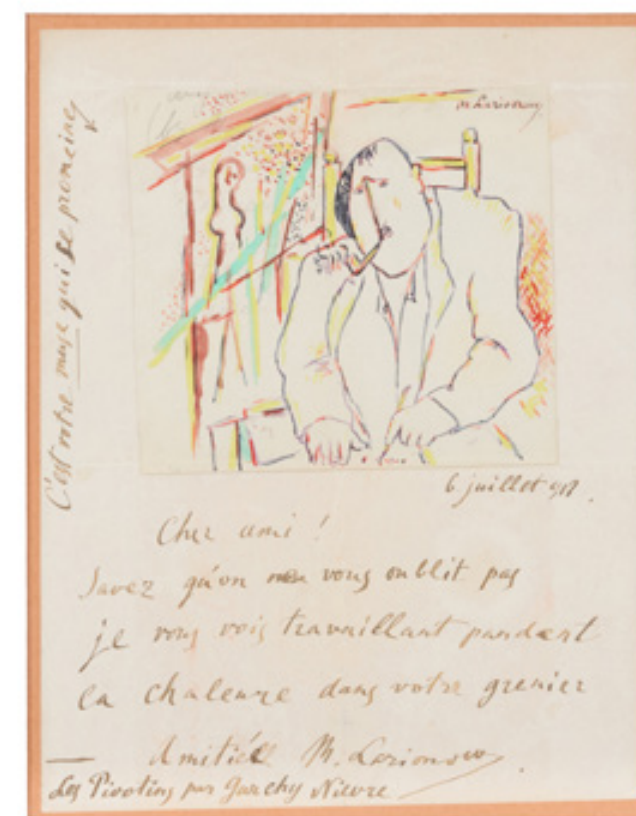 M. Larionow
C'est votre muse qui se promeing
6 juillet 917.
Cher ami !
Savez qu'on vous oublit pas
je vous vois travaillant pandant
la chaleure dans votre grenier
Amitiée M. Larionow
Les Pivoting par Garchy Nievre